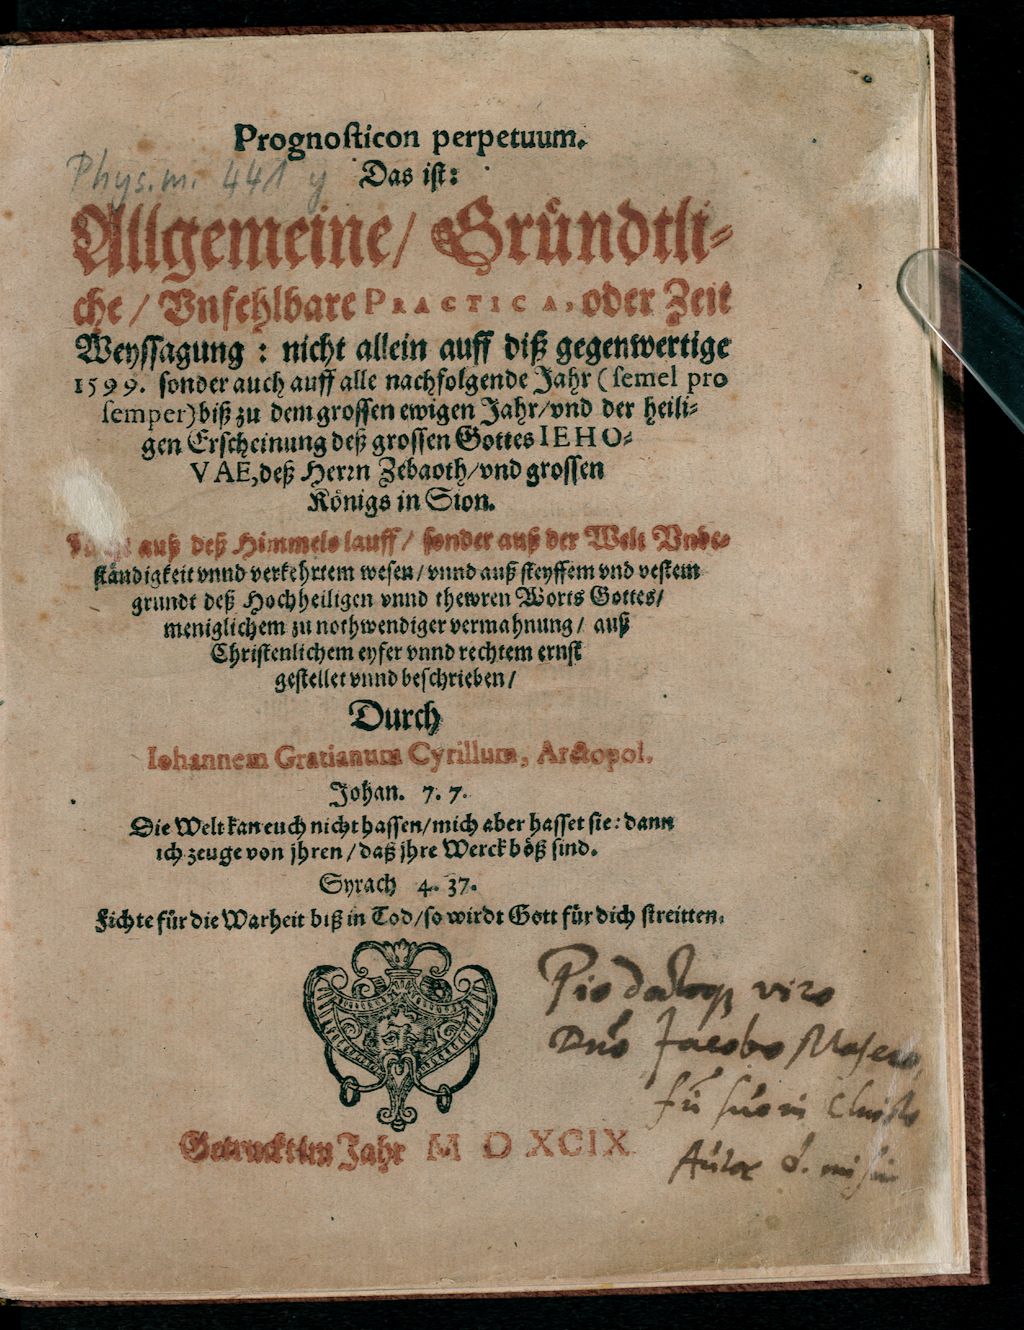 Prognosticon perpetuum.
Phys. m. 441 y
Das ist:
Allgemeine/ Gründtli-
che/ Vnfehlbare PRACTICA, oder Zeit
Weyssagung : nicht allein auff diß gegenwertige
1599. sonder auch auff alle nachfolgende Jahr (semel pro
semper) biß zu dem grossen ewigen Jahr/vnd der heili-
gen Erscheinung deß grossen Gottes IEHO-
VAE, deß Herrn Zebaoth/vnd grossen
Königs in Sion.
auß deß Himmels lauff/ sonder auß der Welt Vnbe-
ständigkeit vnnd verkehrtem wesen/ vnnd auß steyffem vnd vestem
grundt deß Hochheiligen vnnd thewren Worts Gottes/
meniglichem zu nothwendiger vermahnung/ auß
Christenlichem eyfer vnnd rechtem ernst
gestellet vnnd beschrieben/
Durch
Iohannem Gratianum Cyrillum, Arctopol.
Johan. 7. 7.
Die Welt kan euch nicht hassen/mich aber hasset sie: dann
ich zeuge von jhren/daß jhre Werck böß sind.
Syrach 4. 37.
Fichte für die Warheit biß in Tod/so wirdt Gott für dich streitten.
Pio viro
Dno Jacobo
suo in Christo
Autor d.
Getruckt im Jahr M D XCIX